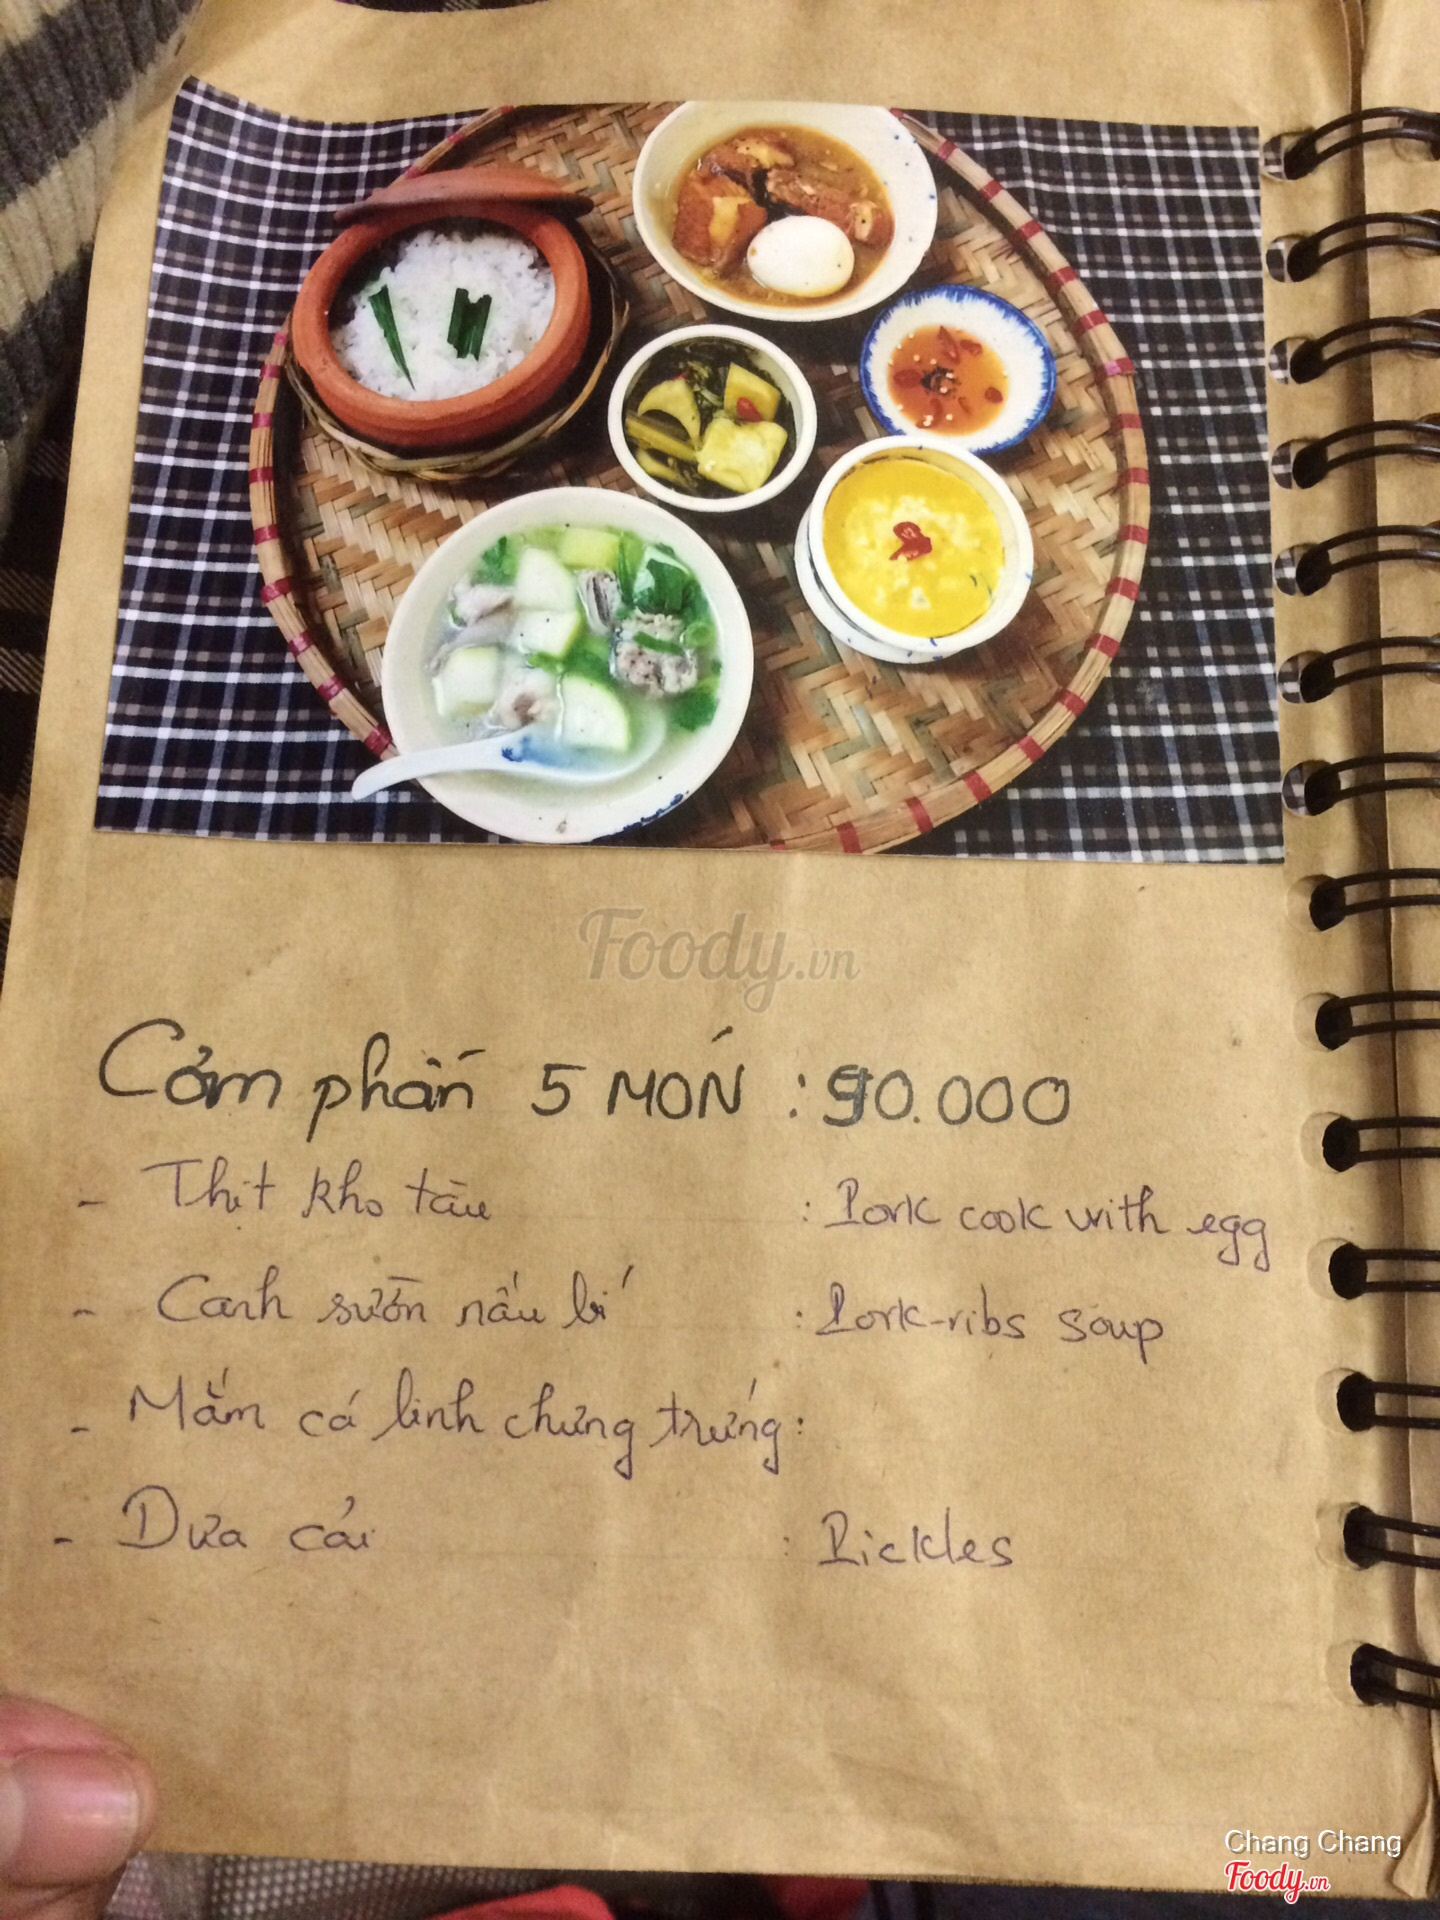 Foody.vn
Cơm phần 5 MÓN : 90.000
- Thịt kho tàu : Pork cook with egg
- Canh sườn nấu bí : Pork-ribs soup
- Mắm cá linh chưng trứng :
- Dưa cải : Pickles
Chang Chang
Foody.vn